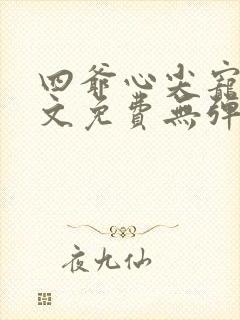 四爺心尖寵
文免費無彈
夜九仙